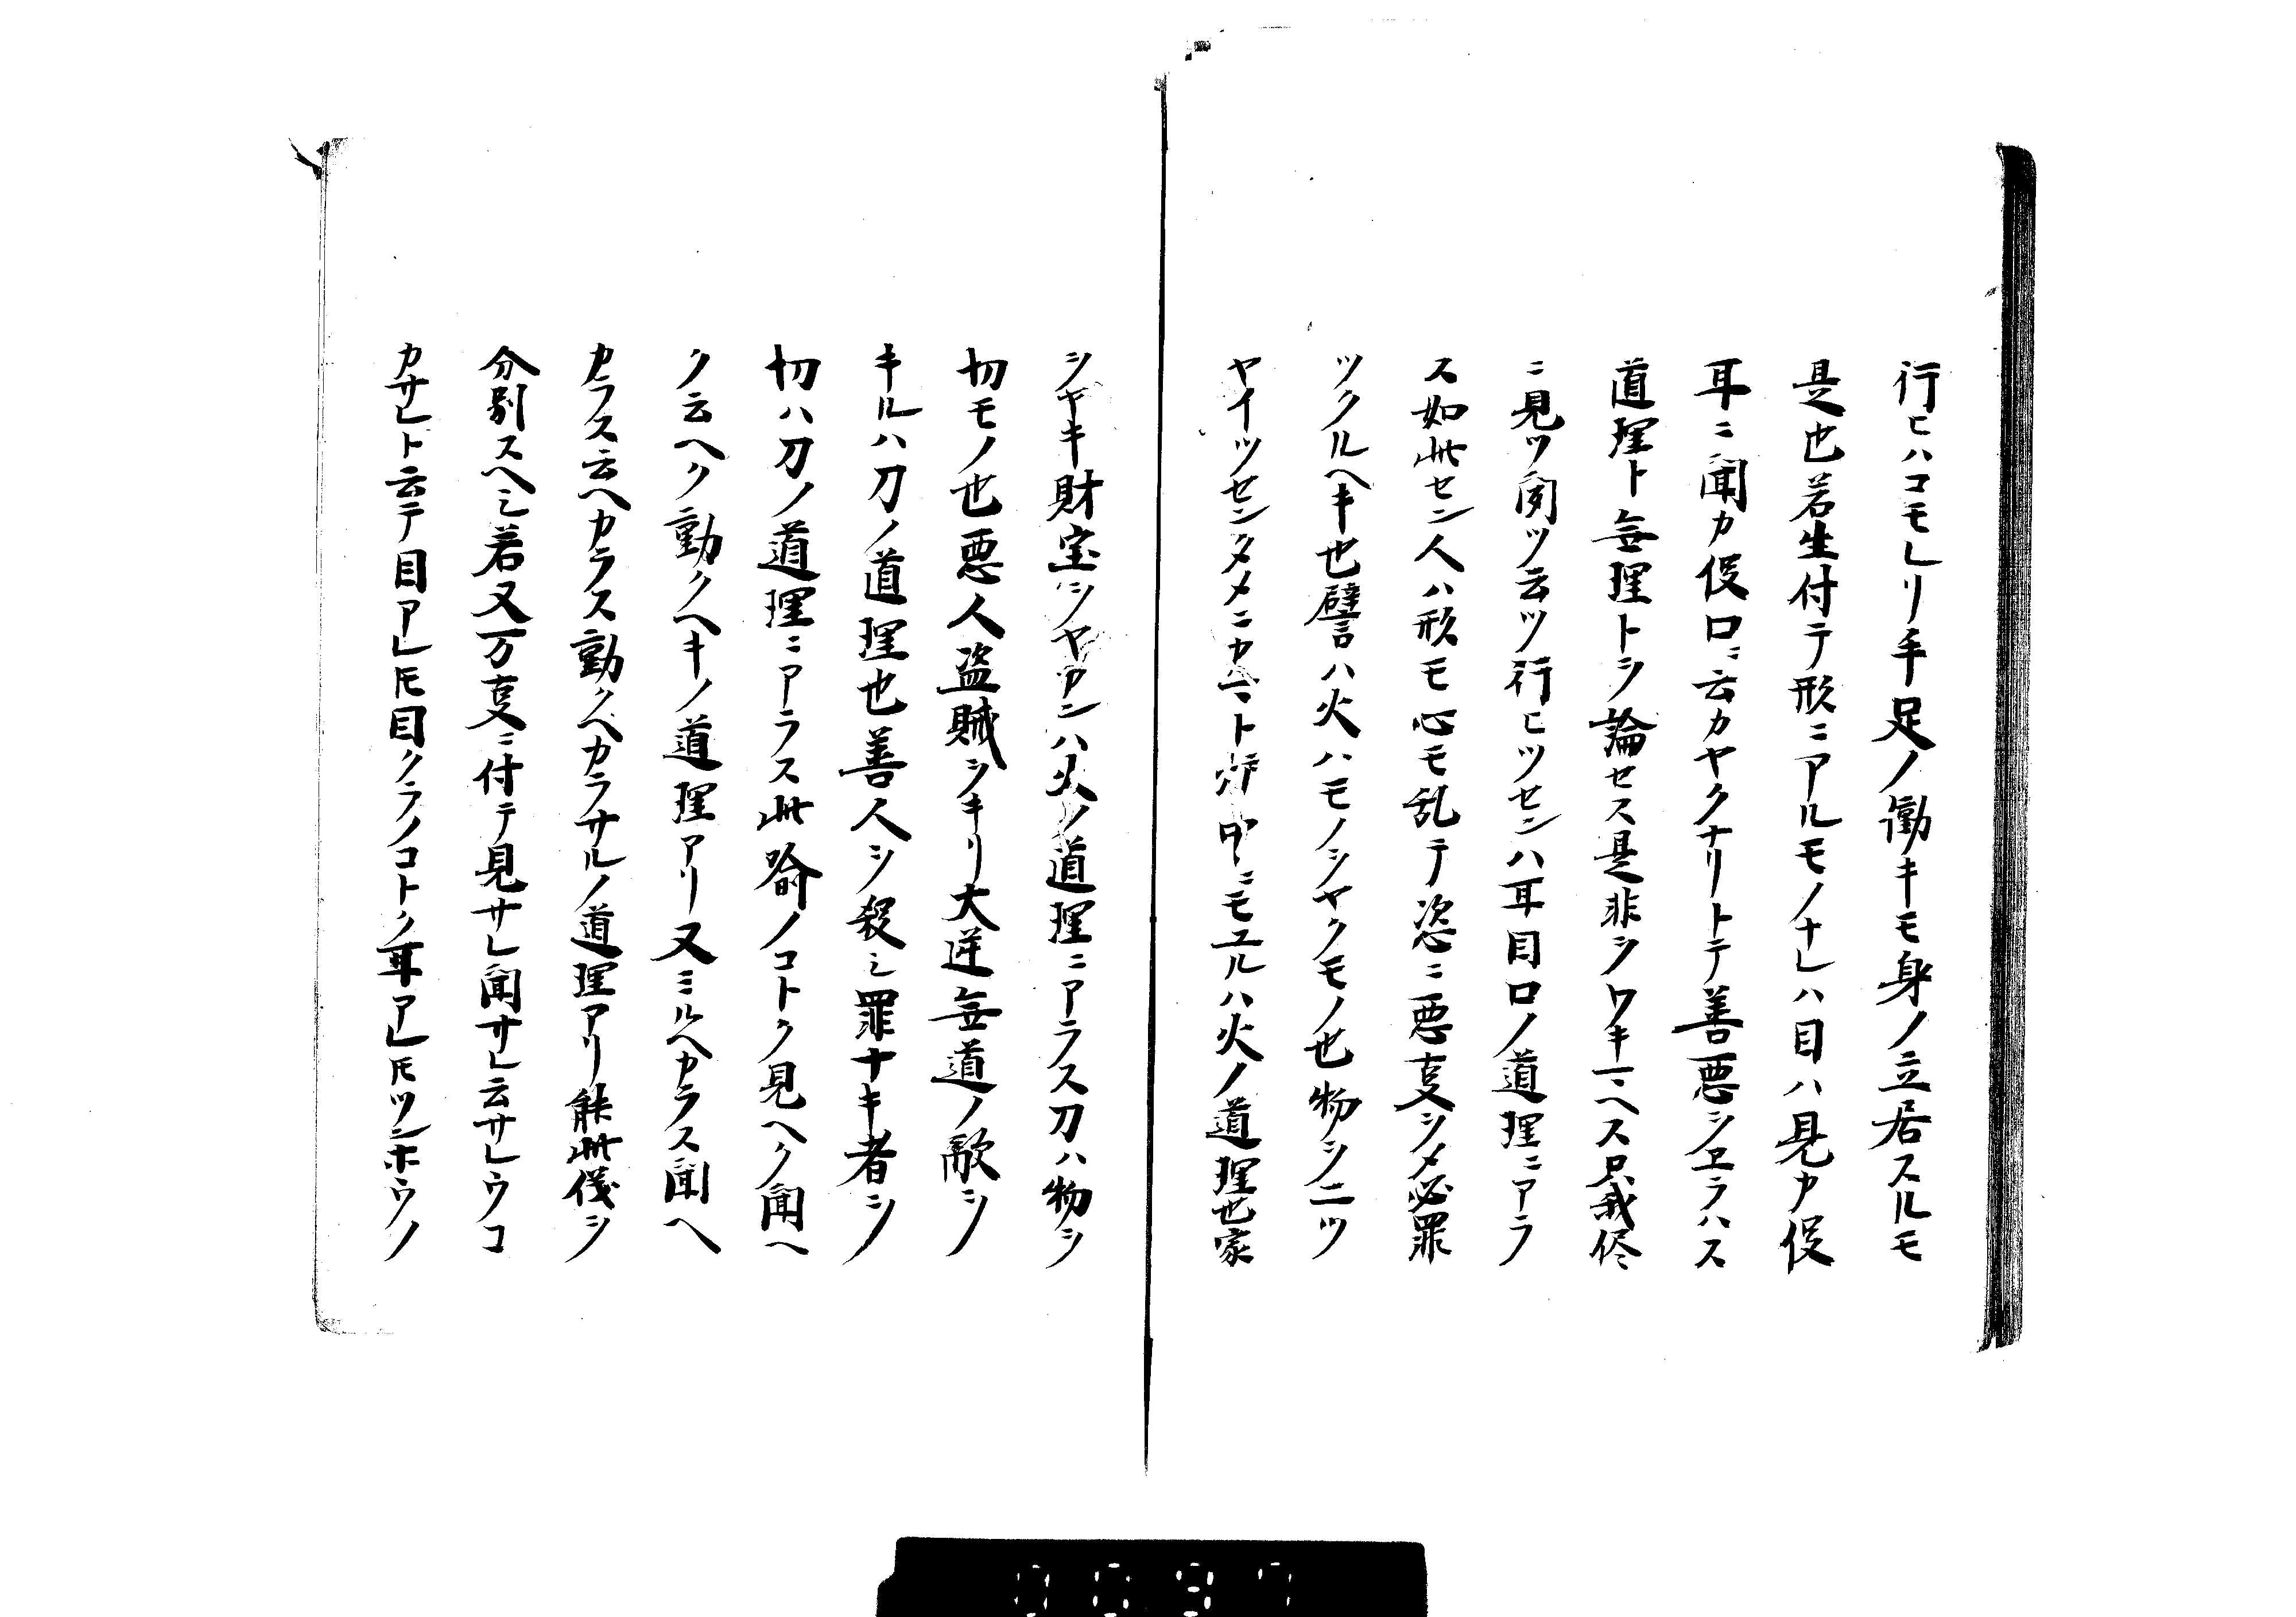 行ヒハコモレリ手足ノ働キモ身ノ立居スルモ
是也若生付テ形ニアルモノナレハ目ハ見カ役
耳ニ聞カ役口ニ云カヤクナリトテ善悪ヲヱラハス
道理ト無理トヲ論セス是非ヲワキマヘス只我侭
ニ見ツ聞ツ云ツ行ヒツセンハ耳目口ノ道理ニアラ
ス如此セン人ハ形モ心モ乱テ恣ニ悪事ヲメ必罪
ツクルヘキ也譬ハ火ハモノヲヤクモノ也物ヲニツ
ヤイツセンタメニカマト炉中ニモユルハ火ノ道理也家
ヲヤキ財宝ヲヤクハ火ノ道理ニアラス刀ハ物ヲ
切モノ也悪人盗賊ヲキリ大逆無道ノ敵ヲ
キルハ刀ノ道理也善人ヲ殺シ罪ナキ者ヲ
切ハ刀ノ道理ニアラス此喩ノコトク見ヘク聞ヘ
ク云ヘク動クヘキノ道理アリ又ミルヘカラス聞ヘ
カラス云ヘカラス動クヘカラサルノ道理アリ能此儀ヲ
分別スヘシ若又万事ニ付テ見サレ聞サレ云サレウコ
カサレト云テ目アレ𪜈目クラノコトク耳アレ𪜈ツンホウノ